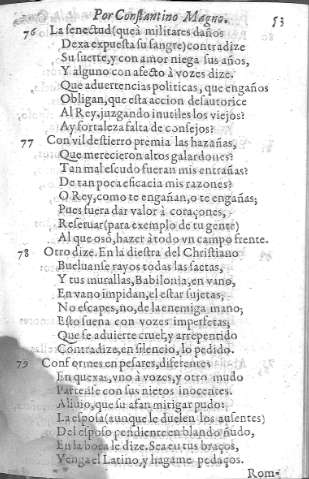 Por Constantino Magno. 53
76 La senectud (que à militares daños
Dexa expuesta su sangre) contradize
Su suerte, y con amor niega sus años,
Y alguno con afecto à vozes dize.
Que aduertencias politicas, que engaños
Obligan, que esta accion desautorice
Al Rey, juzgando inutiles los viejos?
Ay fortaleza falta de consejos?
77 Con vil destierro premia las hazañas,
Que merecieron altos galardones?
Tan mal escudo fueran mis entrañas?
De tan poca eficacia mis razones?
O Rey, como te engañan, o te engañas;
Pues fuera dar valor à coraçones,
Reseruar (para exemplo de tu gente)
Al que osò, hazer à todo vn campo frente.
78 Otro dize. En la diestra del Christiano
Bueluanse rayos todas las saetas,
Y tus murallas, Babilonia, en vano,
En vano impidan, el estar sujetas,
No escapes, no, de la enemiga mano;
Esto suena con vozes imperfetas,
Que se aduierte cruel, y arrepentido
Contradize, en silencio, lo pedido.
79 Conformes en pesares, diferentes
En quexas, vno à vozes, y otro mudo
Partense con sus nietos inocentes.
Aliuio, que su afan mitigar pudo:
La esposa (aunque le duelen los ausentes)
Del esposo pendiente en blando ñudo,
En la boca le dize. Sea en tus braços,
Venga el Latino, y hagame pedaços.
Rom-